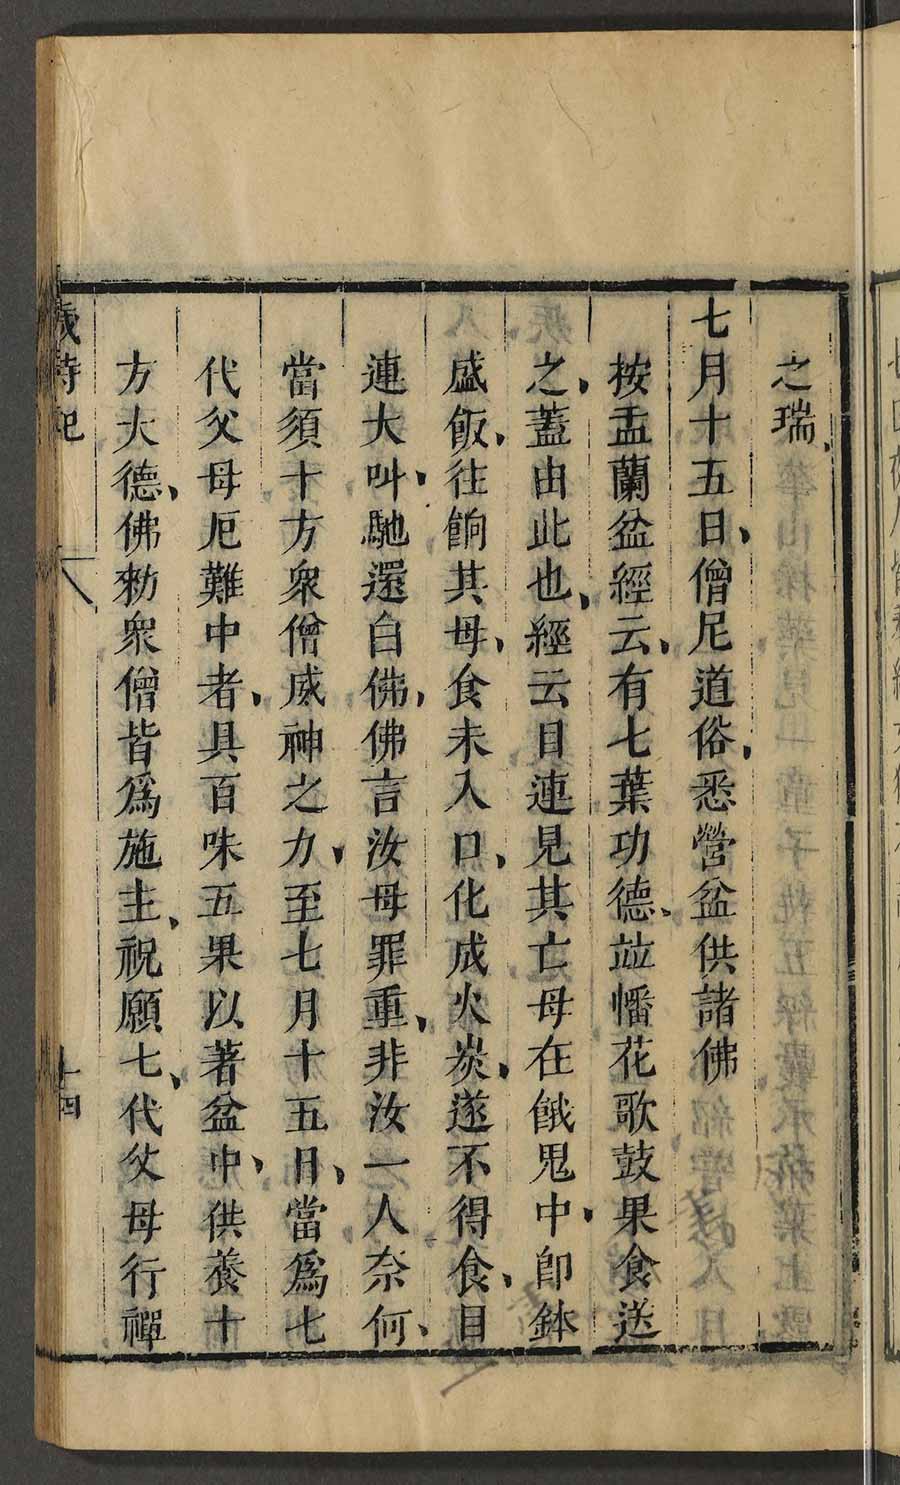 之瑞
七月十五日、僧尼道俗、悉營盆供諸佛
按盂蘭盆經云、有七葉功德、竝幡花歌鼓果食送
之、蓋由此也、經云目連見其亡母在餓鬼中、卽鉢
盛飯、往餉其母、食未入口、化成火炭、遂不得食、目
連大叫、馳還白佛、佛言汝母罪重、非汝一人奈何、
當須十方衆僧威神之力、至七月十五日、當爲七
代父母厄難中者、具百味五果以著盆中、供養十
方大德、佛勑衆僧皆爲施主、祝願七、代父母行禪
歲時記
十四